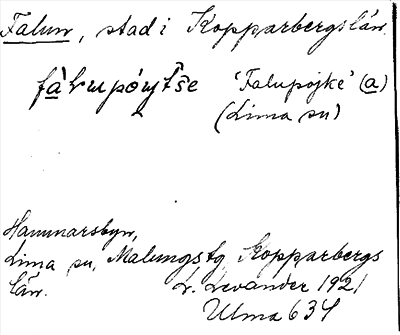 Falun, stad i Kopparbergs län.
'Falupojke' (a)
(Lima sn)
Hammarsbyn,
Lima sn, Malungs tg Kopparbergs
län. L. Levander 1921
Ulma 634